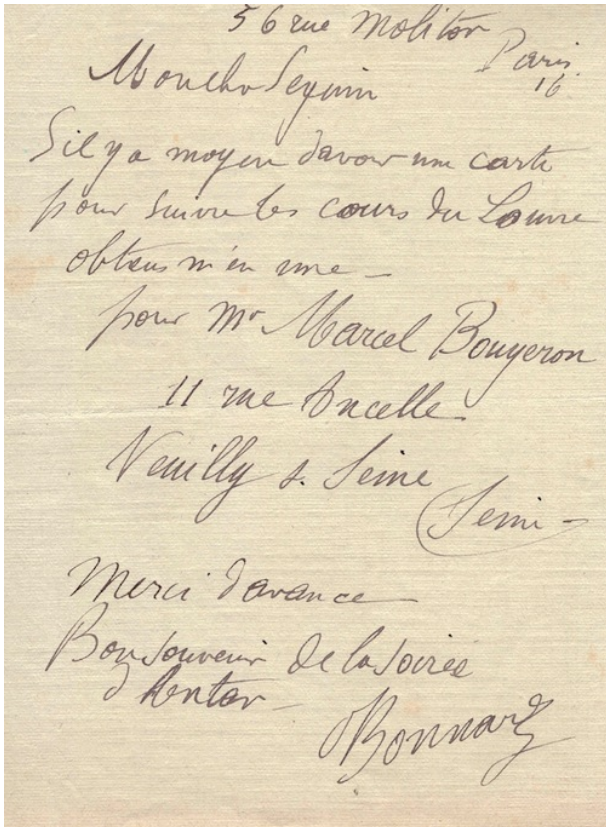 56 rue Molitor
Paris
16
Mon cher Seguin
S'il y a moyen d'avoir une carte
pour suivre les cours du Louvre
obtiens m'en une –
pour Mr Marcel Bouyeron
11 rue Ancelle
Neuilly s. Seine
(Seine –
Merci d'avance
Bon souvenir de la soirée
d'Antar –
Bonnard